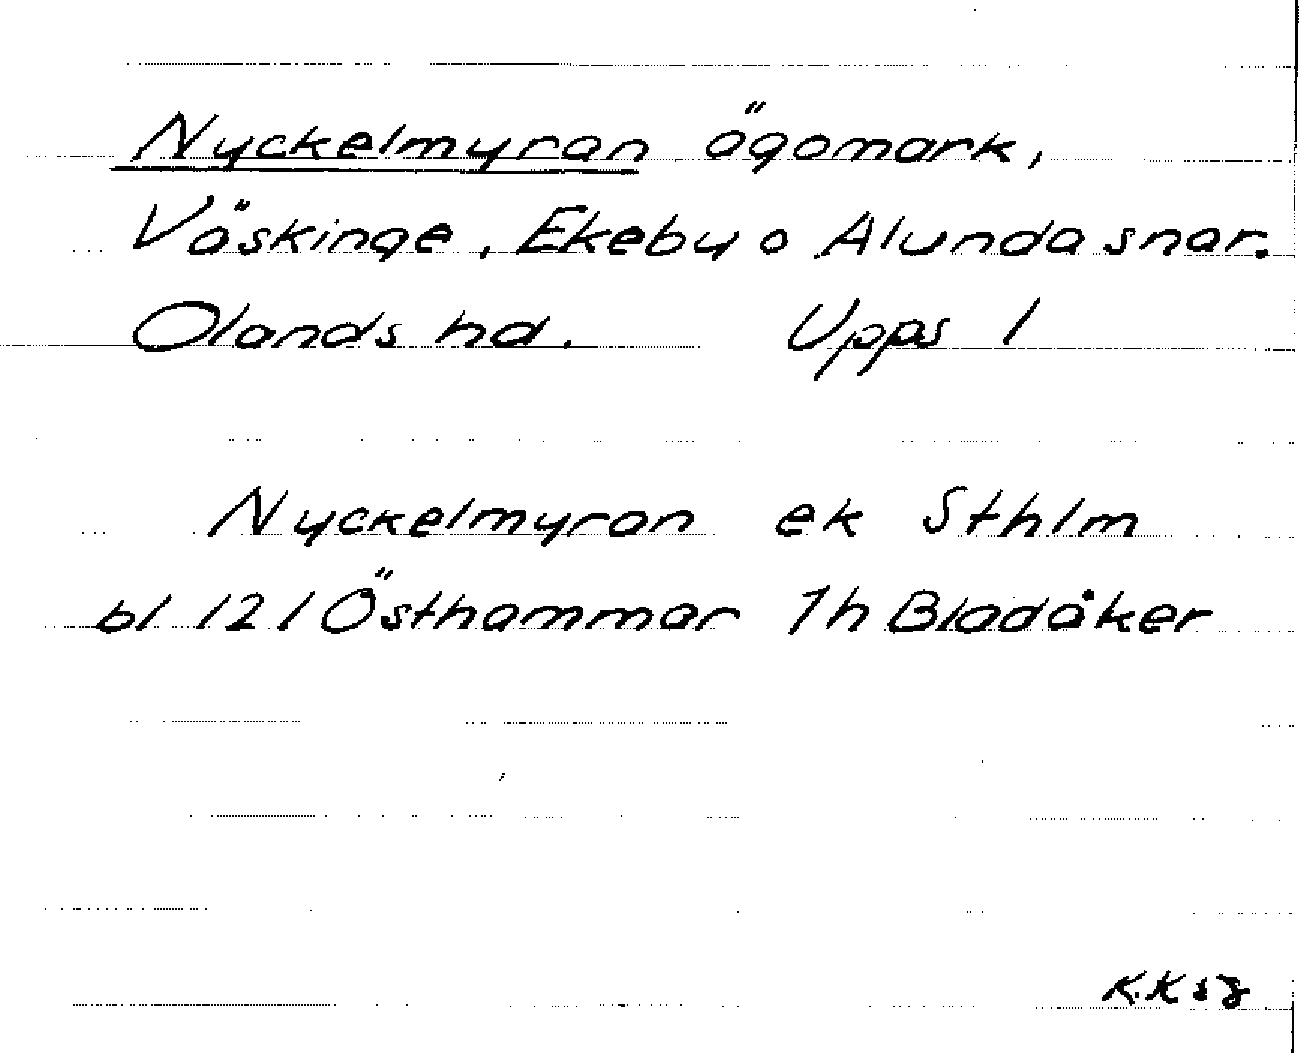 Nyckelmyran ägomark,
Väskinge, Ekeby o Alunda snar.
Olands hd. Upps l
Nyckelmyran ek Sthlm
bl 121 Östhammar 7h Bladåker